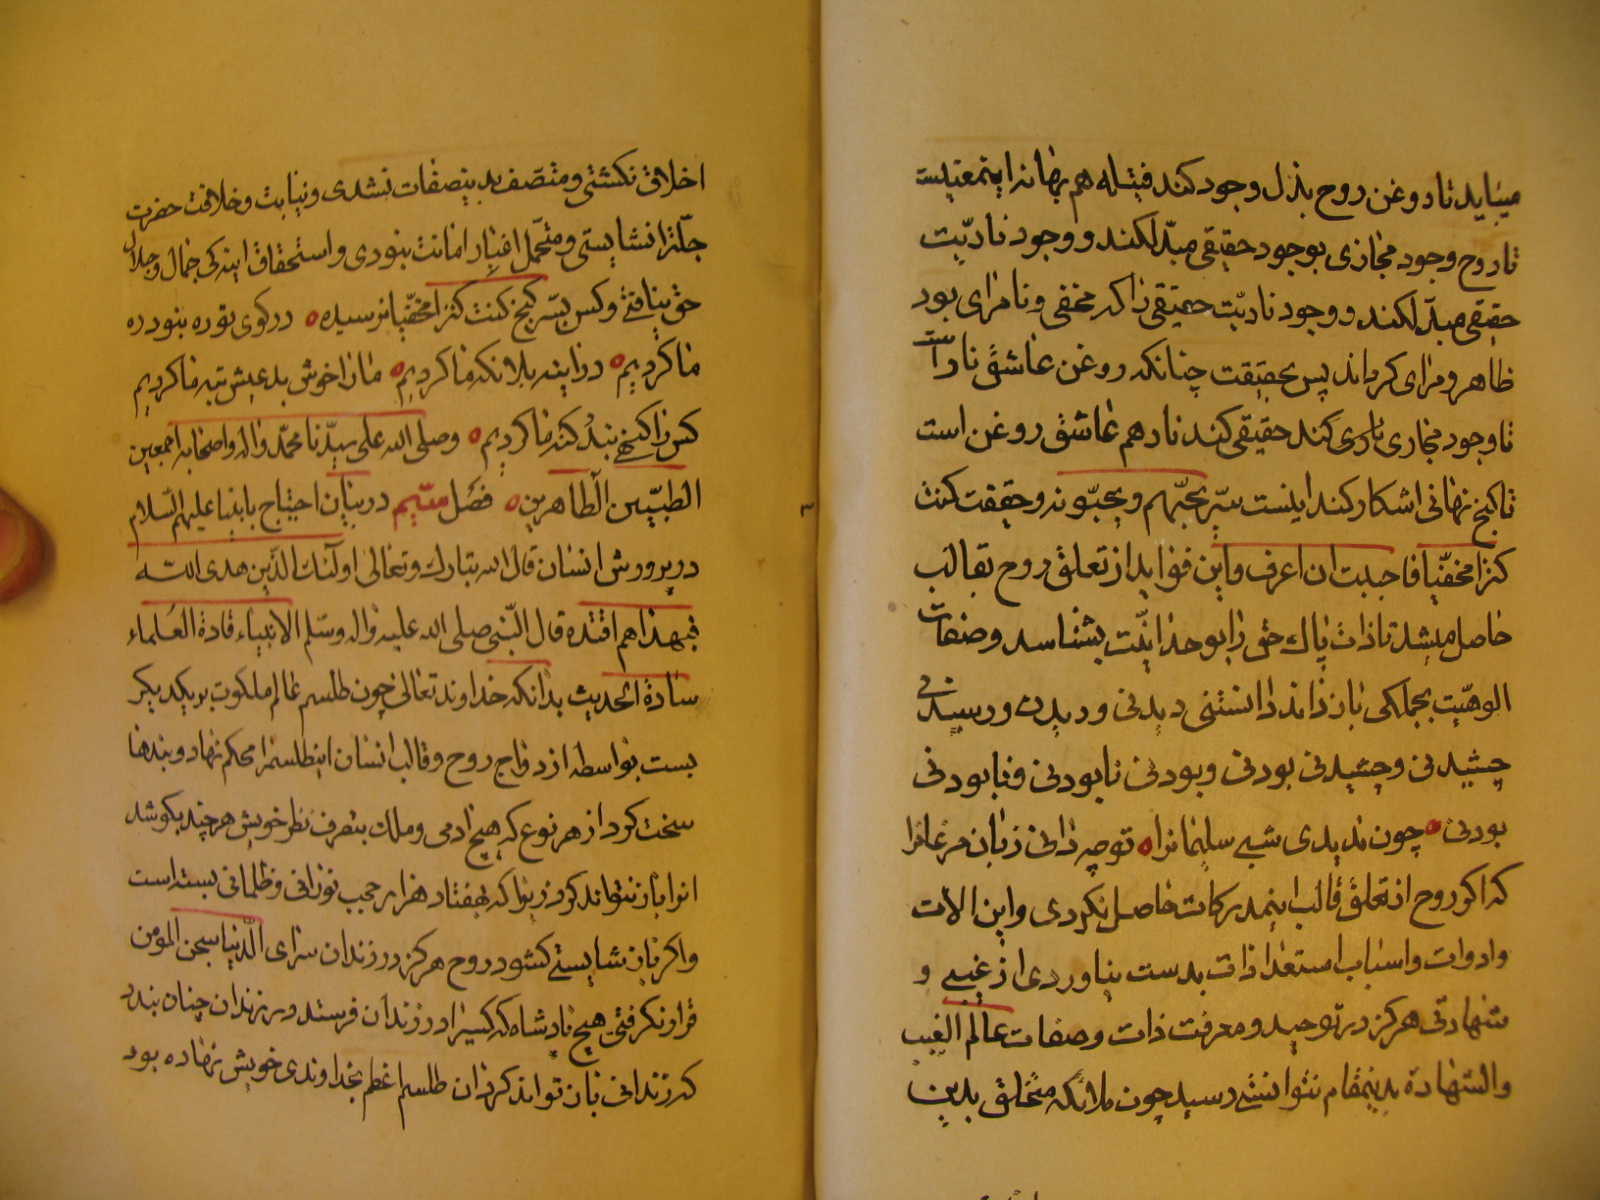 میباید تا روغن روح بذل وجود کند فتیله هم بهانه اینمعنیست
تا روح وجود مجازی بوجود حقیقی مبدّل کند و وجود ناریّت
حقیقی مبدّل کند و وجود ناریّت حقیقی را که مخفی و نامرای بود
ظاهر و مرای گرداند پس بحقیقت چنانکه روغن عاشق نار است
تا وجود مجازی ناری کند حقیقی کند نار هم عاشق روغن است
تا گنج نهانی اشکار کند اینست سرّ یحبّهم و یحبّونه و حقیقت کنت
کنزا مخفیّا فاحببت ان اعرف و این فواید از تعلق روح بقالب
حاصل میشد تا ذات پاك حق را بوحدانیّت بشناسد و صفات
الوهیّت بجملکی باز داند دانستنی دیدنی و دیدن و رسیدنی
چشیدنی و چشیدنی بودنی و بودنی نابودنی و نابودنی
بودنی چون ندیدی شبی سلیمانرا تو چه دانی زبان مرغانرا
که اکر روح از تعلق قالب اینمدرکات حاصل نکردی و این الات
و ادوات و اسباب استعدادات بدست نیاوردی از غیبی و
شهادتی هرکز در توحید و معرفت ذات و صفات عالم الغیب
والشهادة بدینمقام نتوانستی رسید چون ملائکه متخلق بدین
اخلاق نکشتی و متصّف بدینصفات نشدی و نیابت و خلافت حضرت
جلّترا نشایستی و متحمّل اعباء امانت نبودی و استحقاق اینه کی جمال و جلال
حق نیافتی و کس بسّر کنج کنت کنزا مخفیّا نرسیده در کوی تو ره نبود ره
ما کردیم در اینه بلا نکه ما کردیم ما را خوش بد عیش تبه ما کردیم
کس را کنهی نبد کنه ما کردیم وصلی الله علی سیّدنا محمّد واله واصحابه اجمعین
الطیّبین الطاهرین فصل سیّم در بیان احتیاج بانبیا علیهم السّلام
در پرورش انسان قال الله تبارك وتعالی اولئك الذین هدی الله
فبهداهم اقتده قال النّبی صلی الله علیه واله وسّلم الانبیاء قادة العلماء
سادة الحدیث بدانکه خداوند تعالی چون طلسم عالم ملکوت بر یکدیکر
بست بواسطه ازدواج روح و قالب انسان اینطلسمرا محکم نهاد و بندها
سخت کرد از هر نوع که هیچ ادمی و ملك بتصرف نظر خویش هر چند بکوشد
انرا باز نتواند کرد زیرا که بهفتاد هزار حجب نورانی و ظلمانی بسته است
و اکر باز نشایستی کشود روح هرکز در زندان سرای الّدنیا سجن المؤمن
قرار نکرفتی هیچ پادشاه که کسیرا در زندان فرستد در زندان چنان بندد
که زندانی باز تواند کرد ان طلسم اعظم بخداوندی خویش نهاده بود